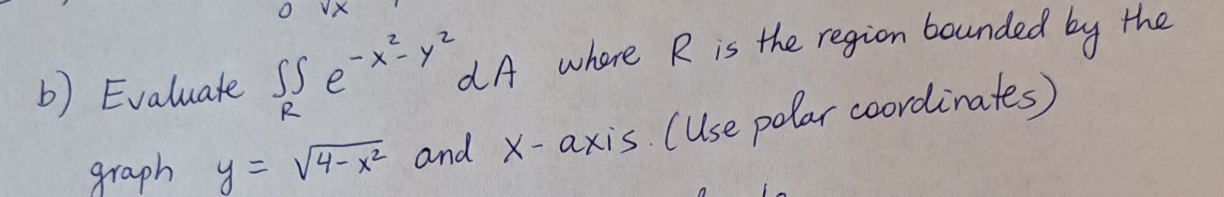 0 √x
b) Evaluate ∬_R e^{-x²-y²} dA where R is the region bounded by the
graph y = √(4-x²) and x-axis. (Use polar coordinates)